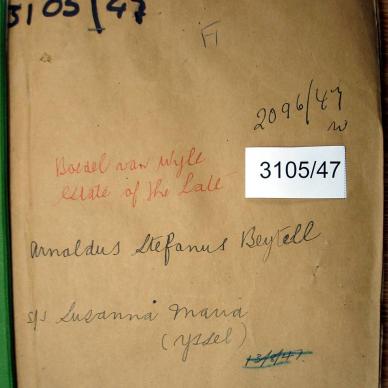 3105/47
2096/47
3105/47
Boedel van Wyle
estate of the Late
Arnoldus Stefanus Beytell
s/s Susanna Maria
(yssel)
13/6/47